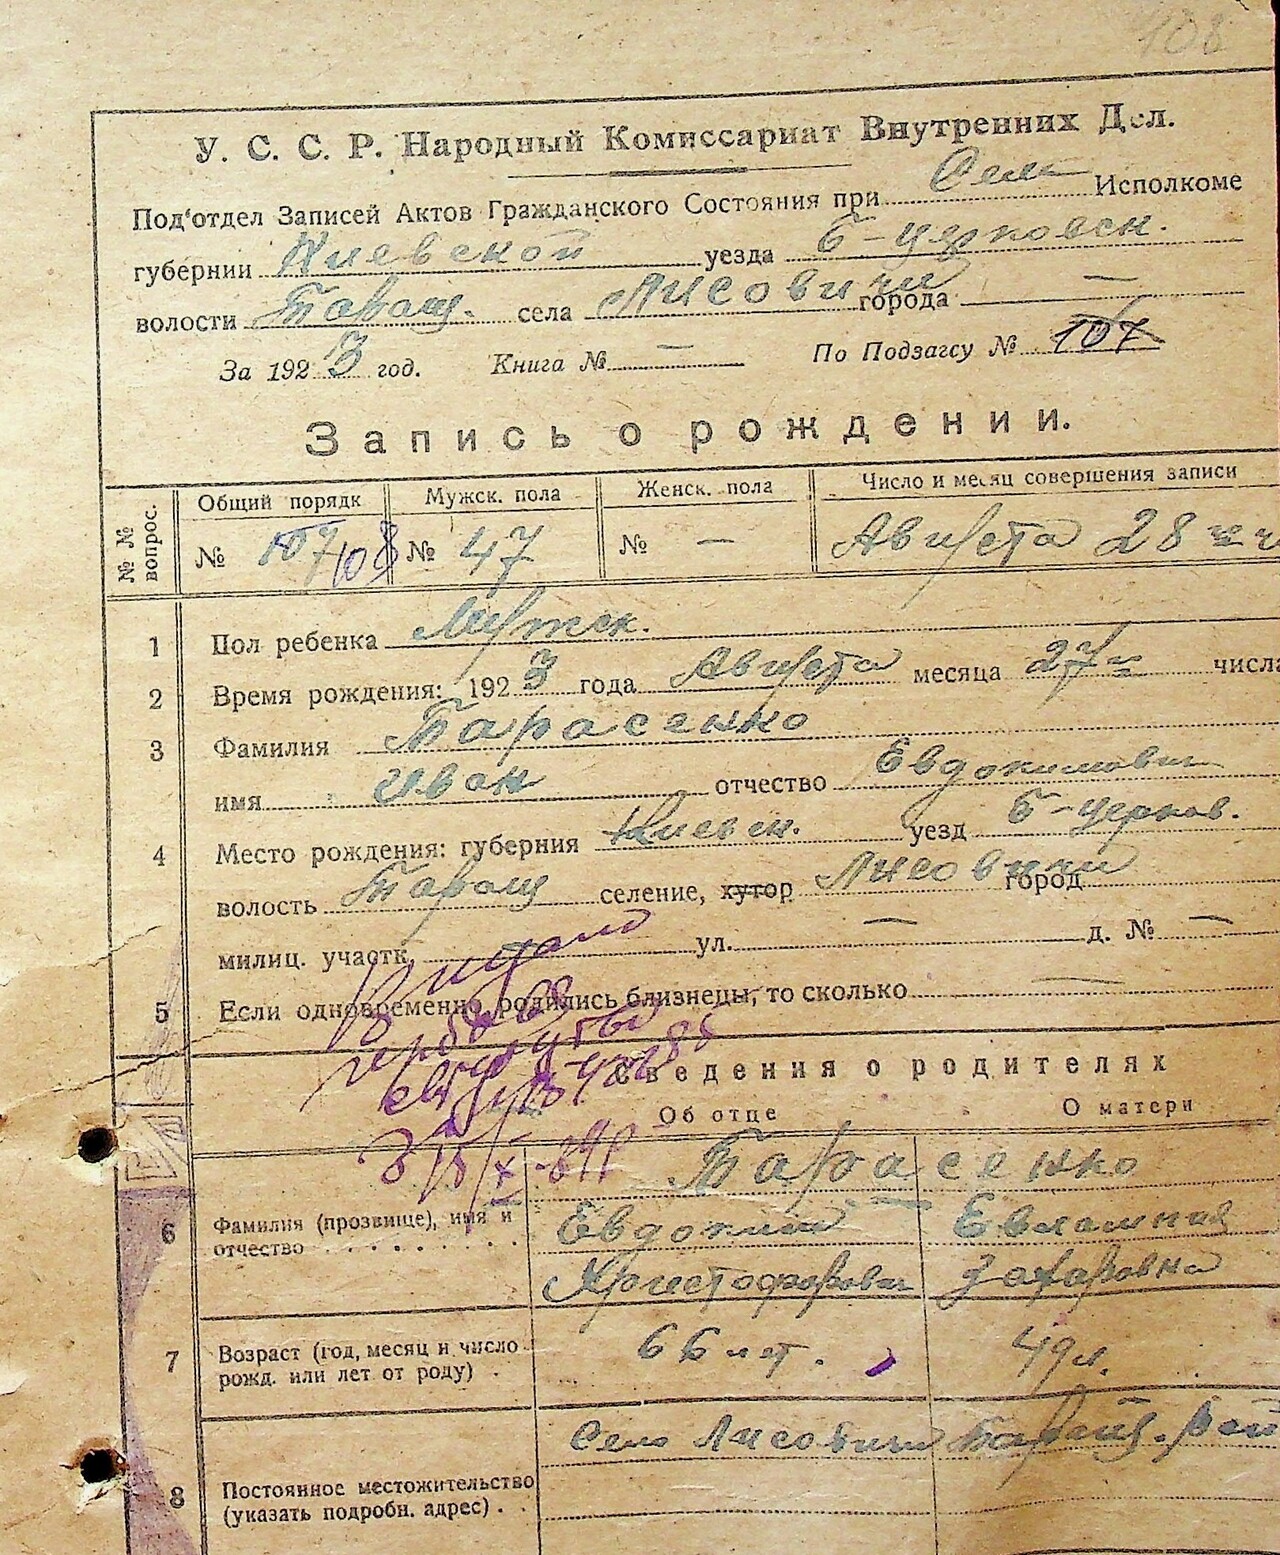 108
У. С. С. Р. Народный Комиссариат Внутренних Дел.
Под'отдел Записей Актов Гражданского Состояния при Сель Исполкоме
губернии Киевской уезда Б-Церковск.
волости Таращ. села Лисовичи города —
За 1923 год. Книга № — По Подзагсу № 107
Запись о рождении.
№ № вопрос. Общий порядк Мужск. пола Женск. пола Число и месяц совершения записи
№ 107 108 № 47 № — Августа 28
1 Пол ребенка Мужск.
2 Время рождения: 1923 года Августа месяца 27 числа
3 Фамилия Тарасенко
имя Иван отчество Евдокимович
4 Место рождения: губерния Киевск. уезд Б-Церков.
волость Таращ селение, хутор Лисовичи город
милиц. участк. ул. — д. № —
5 Если одновременно родились близнецы, то сколько —
Сведения о родителях
Об отце О матери
Тарасенко
6 Фамилия (прозвище), имя и отчество Евдоким Евлампия
Христофорович Захаровна
7 Возраст (год, месяц и число рожд. или лет от роду) 66 лет. 49 л.
8 Постоянное местожительство (указать подробн. адрес) Село Лисовичи Таращ.